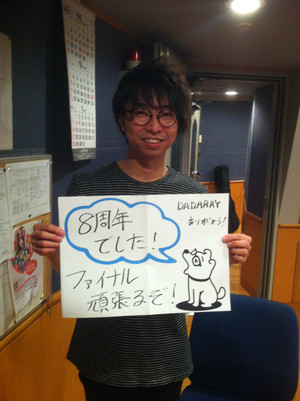 8周年
でした!
DADARAY
ありがとう!
ファイナル
頑張るぞ!